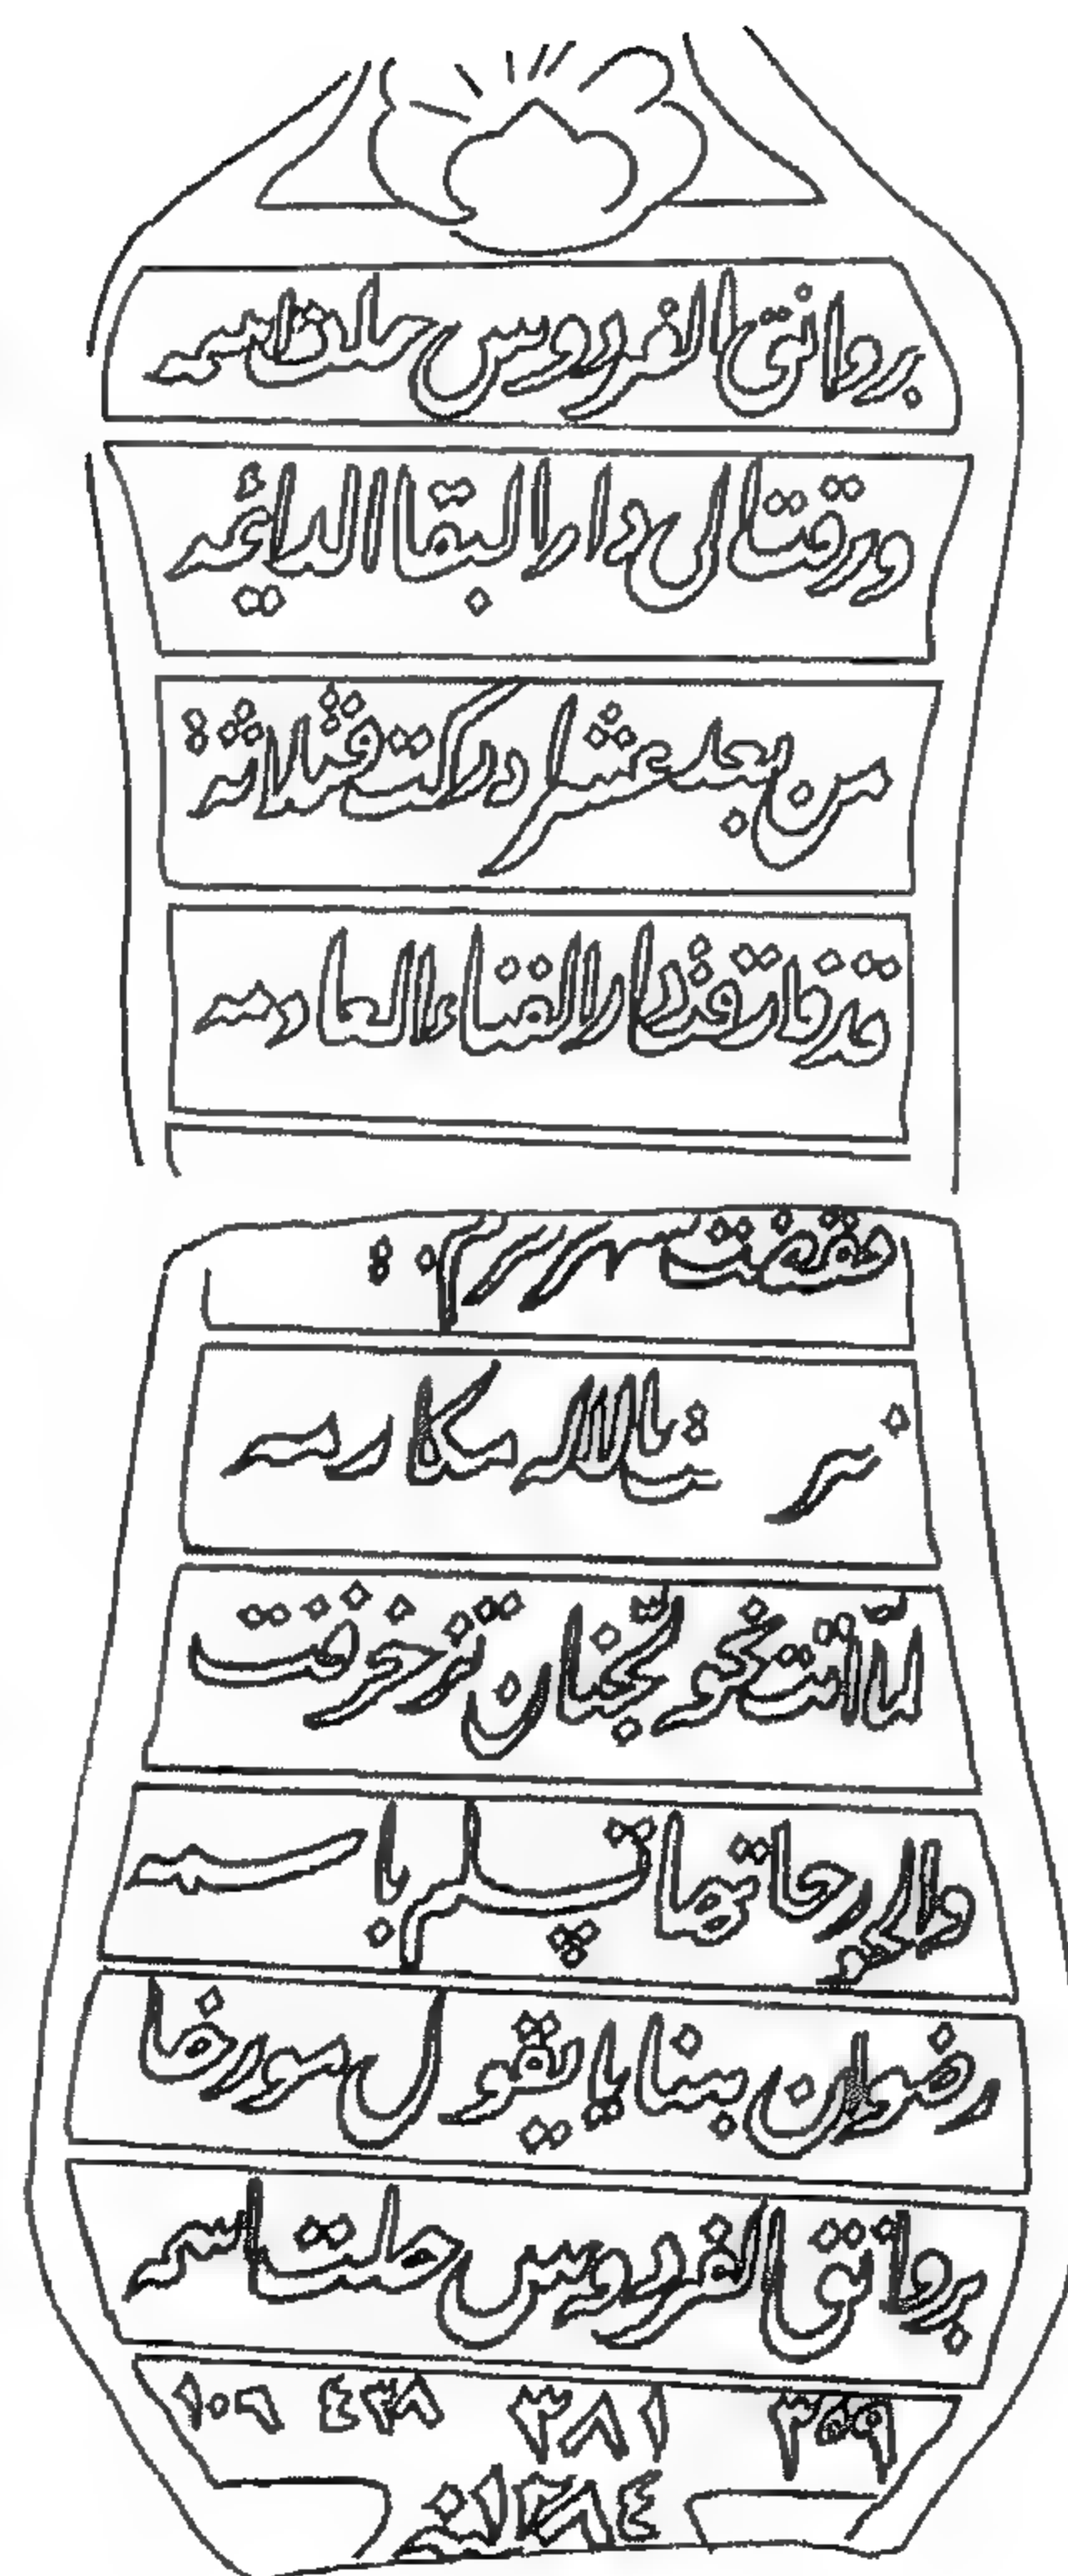 بروانق الفردوس حلت اسمه
ورقت الى دار البقا الدائمه
من بعد عشر ادركت فثلاثة
قد فارقت دار الفناء العادمه
فقضت
الاله مكارمه
لما اتت نحو الجنان تزخرفت
والحور جاتها باسمه
رضوان يقول مورخا
بروانق الفردوس حلت اسمه
٣٥٩ ٣٨١ ٤٣٨ ١٠٦
سنة ١٢٨٤